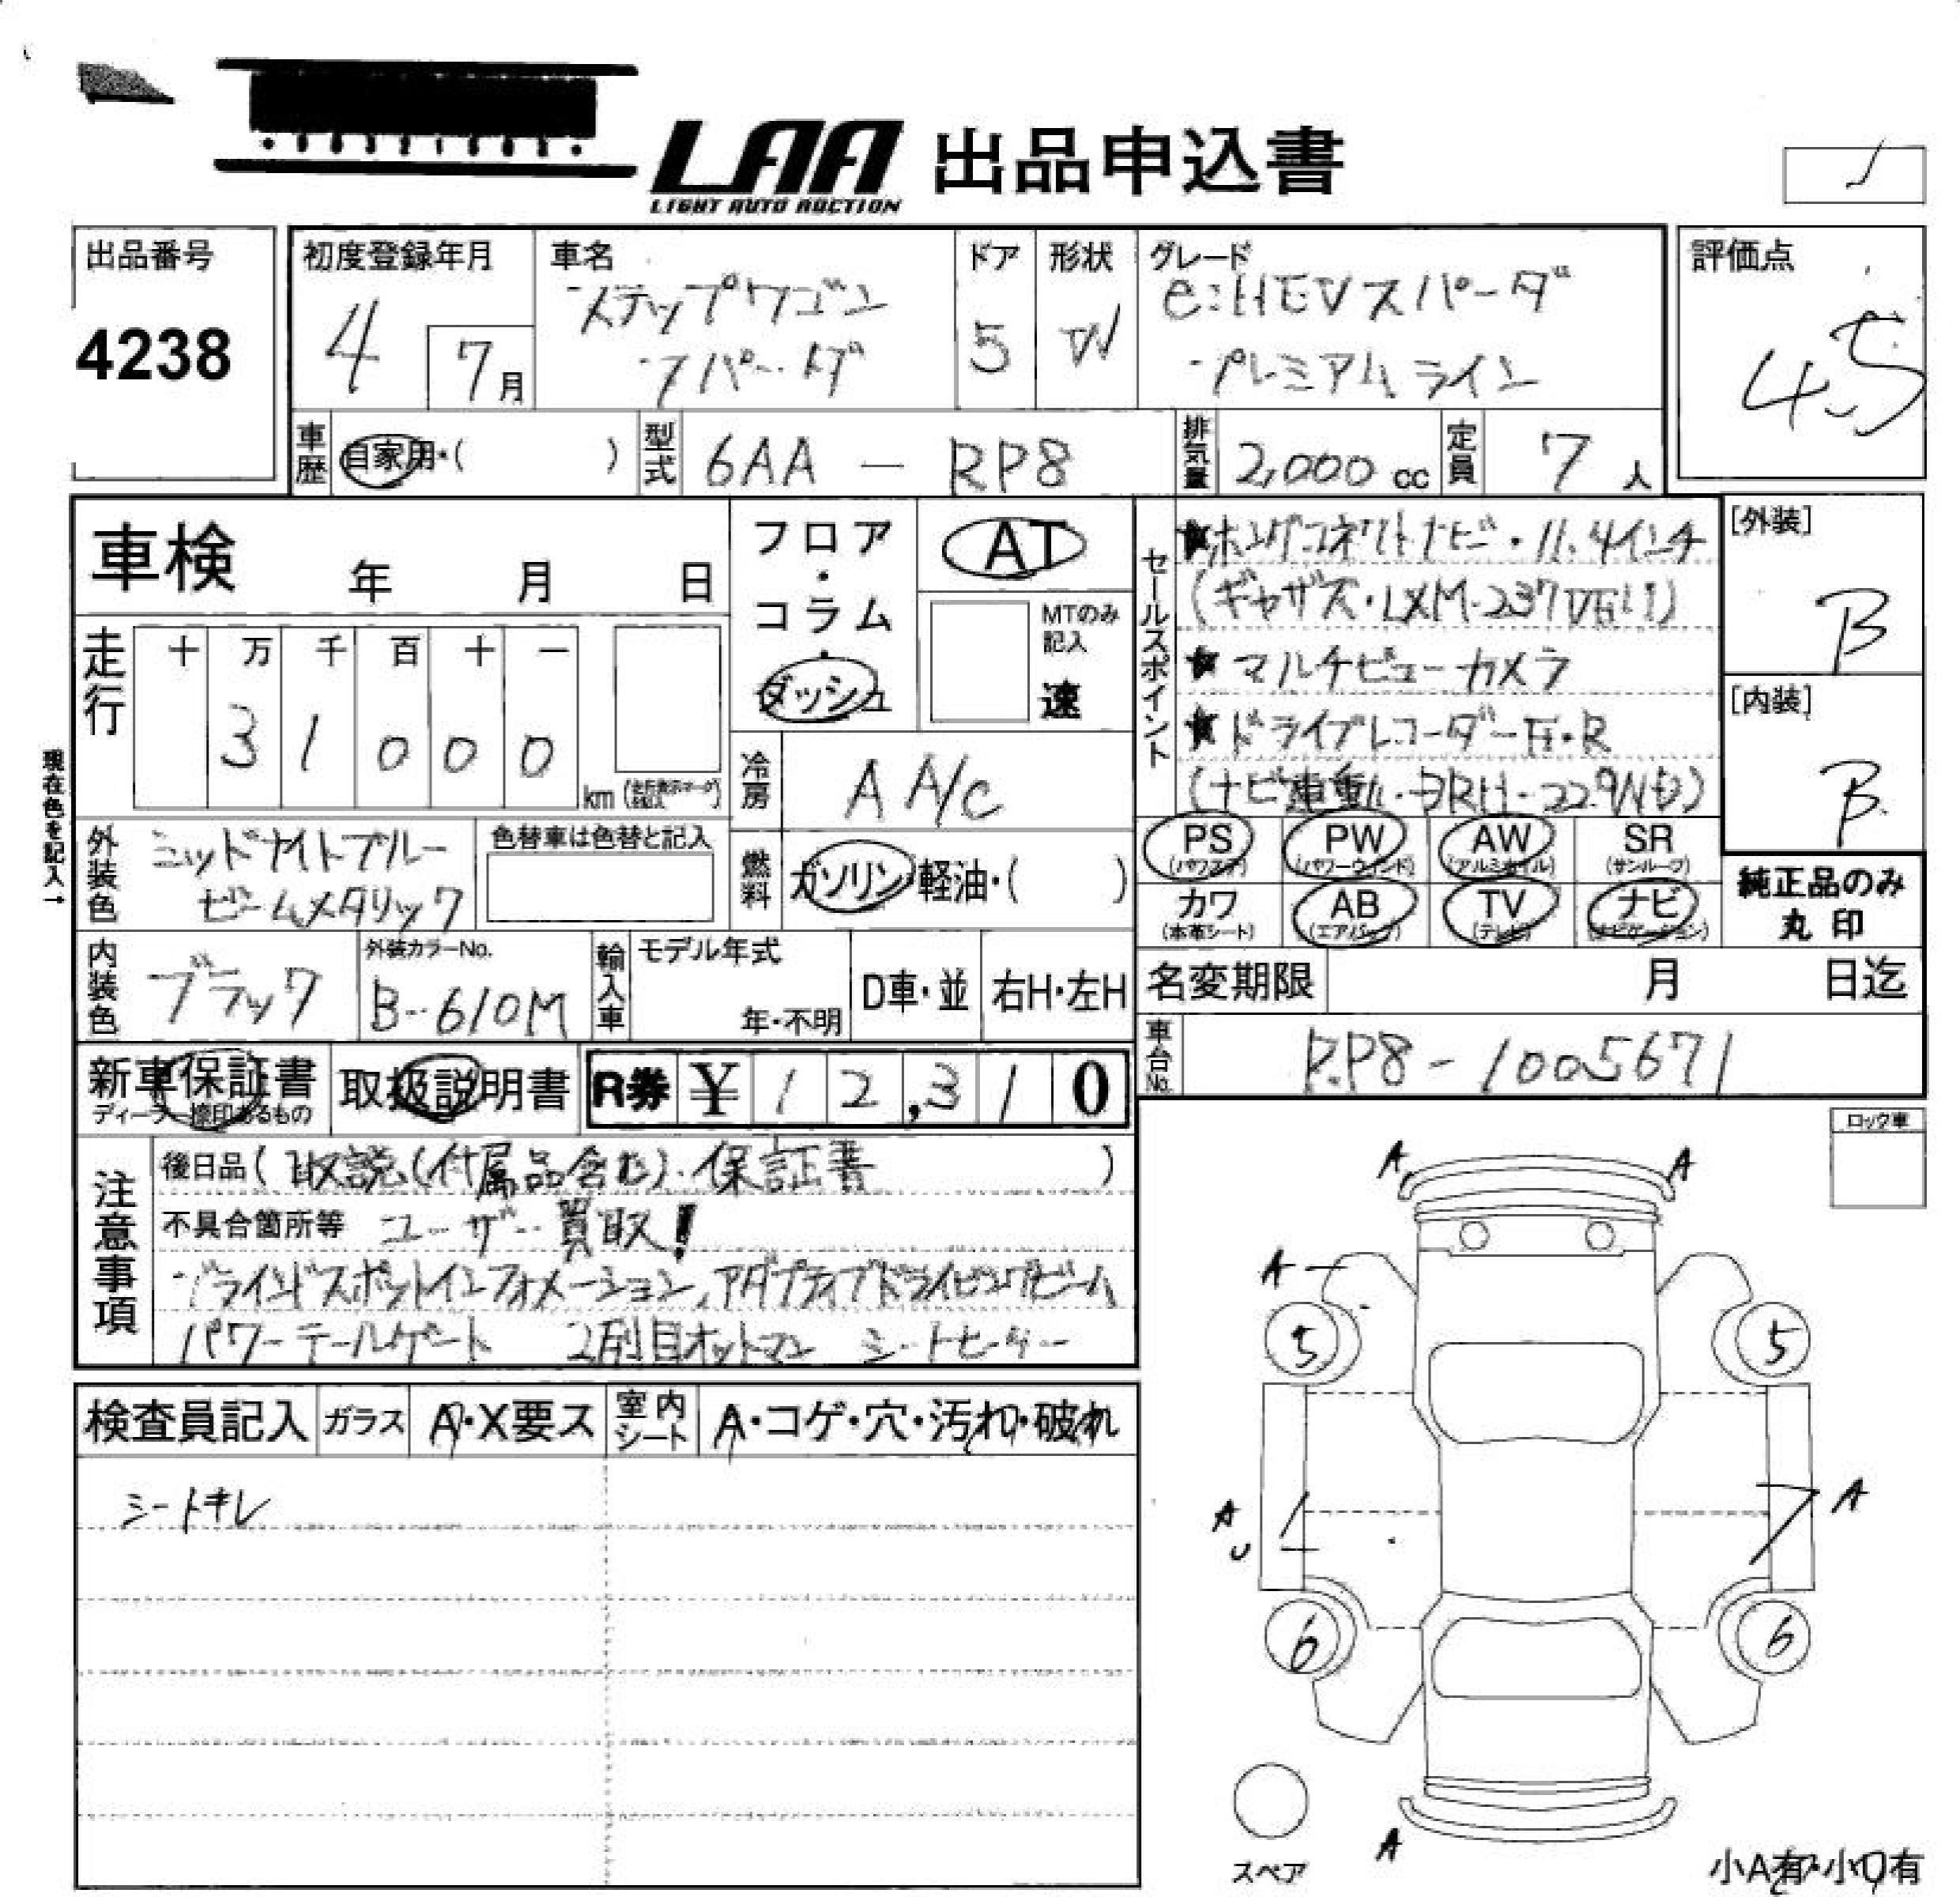 LAA 出品申込書
LIGHT AUTO AUCTION
出品番号
4238
初度登録年月
4
7月
車名
ステップワゴン
スパーダ
ドア
5
形状
W
グレード
e:HEVスパーダ
プレミアムライン
評価点
4.5
車歴
自家用・( )
型式
6AA － RP8
排気量
2,000 cc
定員
7 人
車検
年 月 日
走行
十 万 千 百 十 一
3 1 0 0 0
km
現在色を記入→
フロア
・
コラム
・
ダッシュ
AT
MTのみ
記入
速
冷房
A A/C
燃料
ガソリン・軽油・( )
外装色
ミッドナイトブルー
ビームメタリック
色替車は色替と記入
内装色
ブラック
外装カラーNo.
B-610M
輸入車
モデル年式
年・不明
D車・並
右H・左H
セールスポイント
★ホンダコネクトナビ・11.4インチ
(ギャザズ・LXM-237VFLi)
★マルチビューカメラ
★ドライブレコーダーF・R
[外装]
B
[内装]
B
PS
(パワステ)
PW
(パワーウィンド)
AW
(アルミホイル)
SR
(サンルーフ)
カワ
(本革シート)
AB
(エアバッグ)
TV
(テレビ)
ナビ
(ナビゲーション)
純正品のみ
丸印
名変期限
月 日迄
車台No.
RP8-1005671
新車保証書
取扱説明書
R券 ¥ 1 2,3 1 0
注意事項
後日品(取説(付属品含む)・保証書 )
不具合箇所等 ユーザー買取!
ブラインドスポットインフォメーション,アダプティブドライビングビーム
パワーテールゲート 2列目オットマン シートヒーター
ロック車
検査員記入
ガラス
A・X要ス
室内シート
A・コゲ・穴・汚れ・破れ
シートキレ
A
A
A
5
5
A
U
A
6
6
A
スペア
小A有・小U有